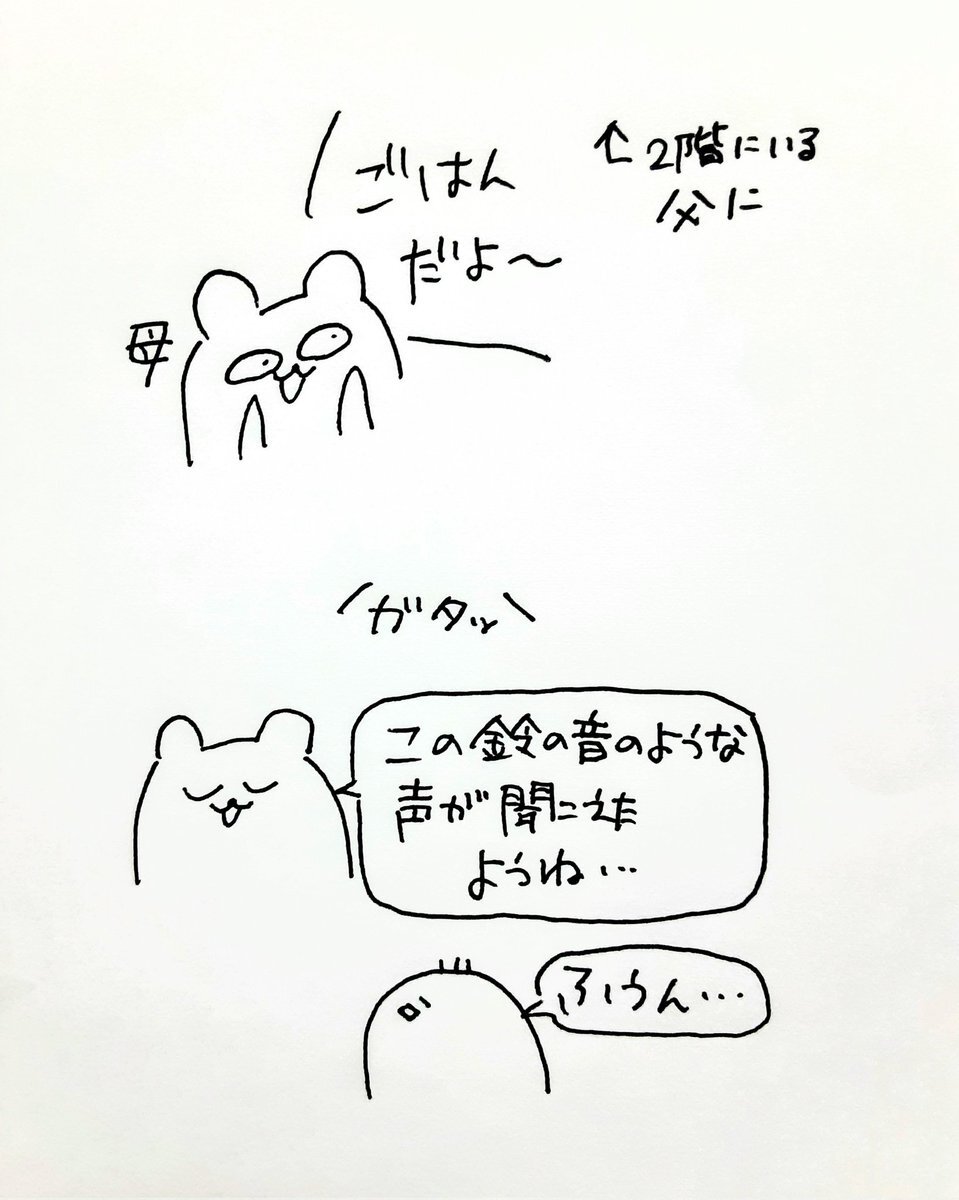 ごはん
だよ〜
↑2階にいる
父に
母
ガタッ
この鈴の音のような
声が聞こえた
ようね…
ふうん…